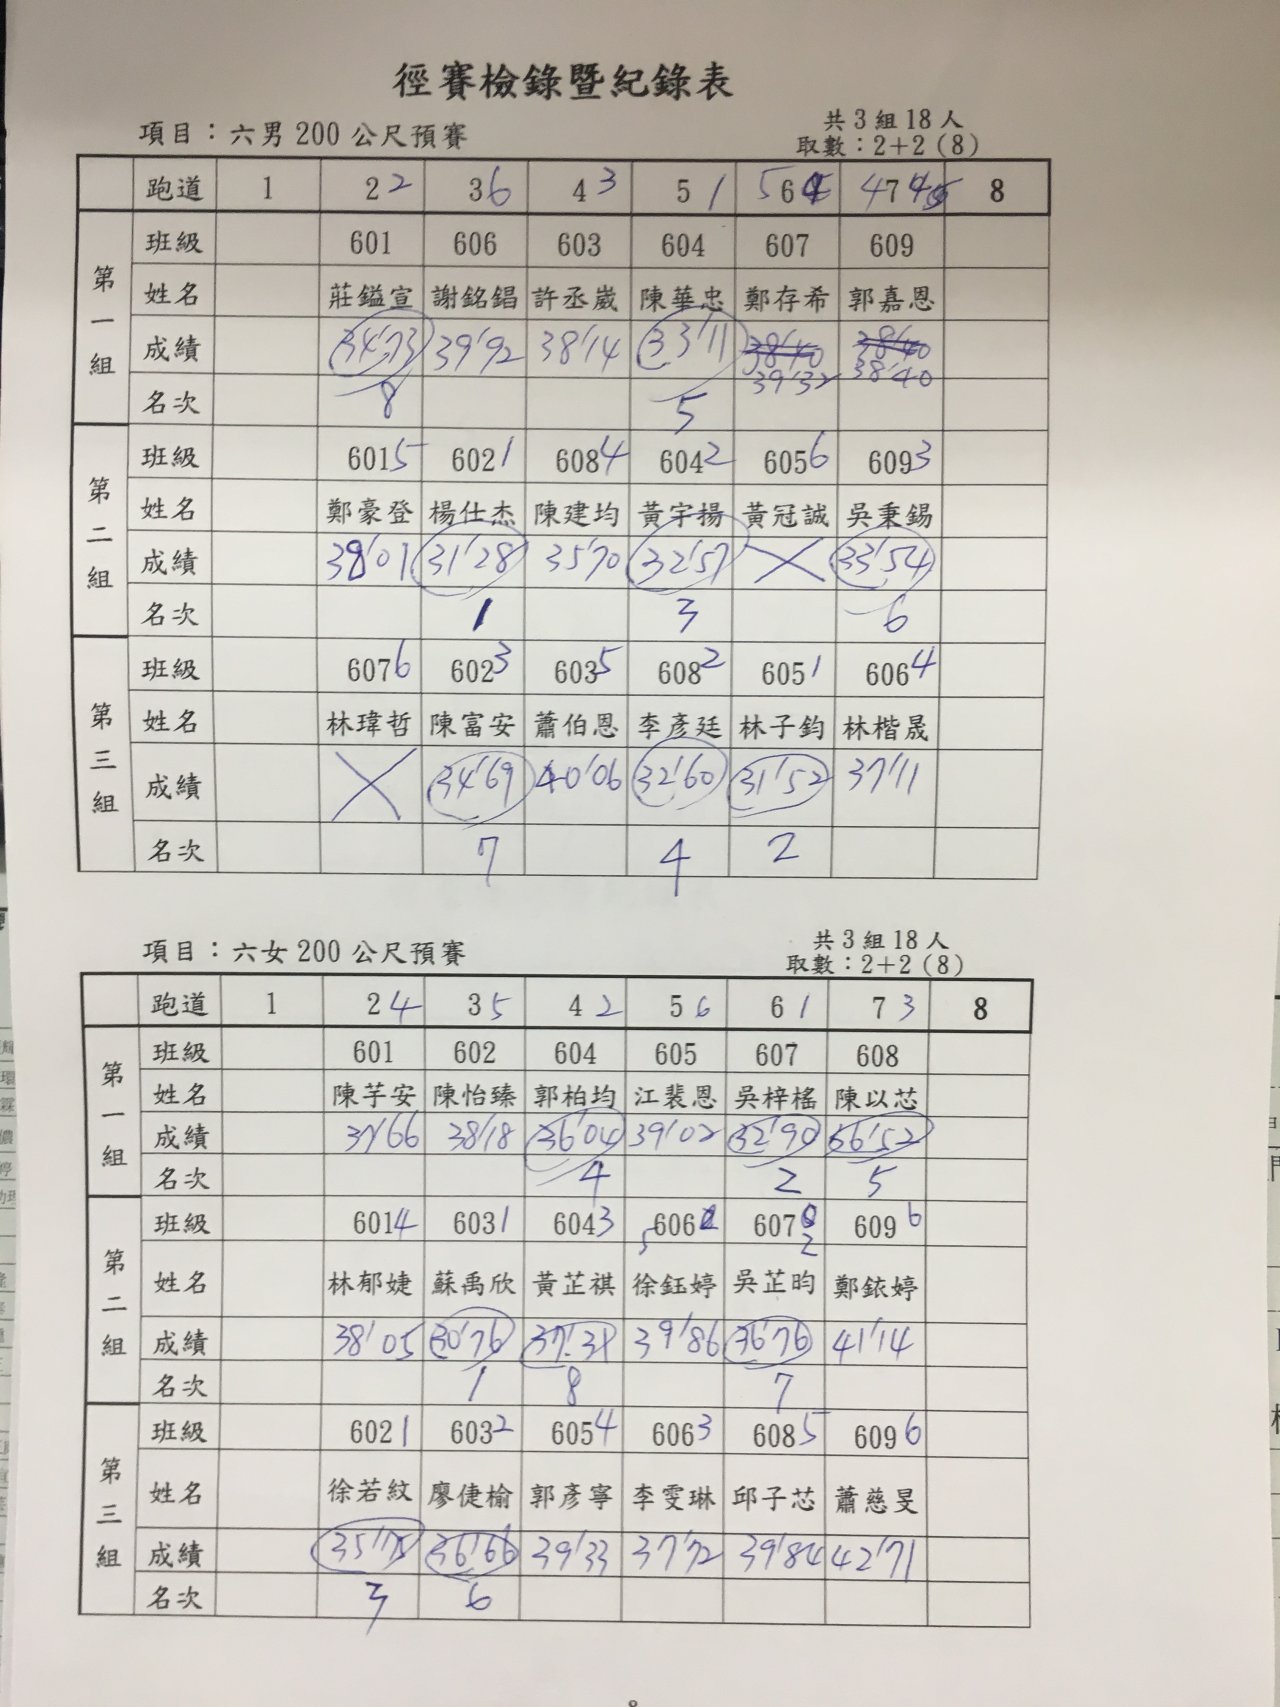 徑賽檢錄暨紀錄表
項目：六男200公尺預賽
共3組18人
取數：2+2（8）
跑道 1 2 2 3 6 4 3 5 1 5 6 4 7 8
第一組
班級 601 606 603 604 607 609
姓名 莊鎰宣 謝銘錩 許丞崴 陳華忠 鄭存希 郭嘉恩
成績 34'73 39'92 38'14 33'11 38'40 38'40
39'32 38'40
名次 8 5
第二組
班級 601 5 602 1 608 4 604 2 605 6 609 3
姓名 鄭豪登 楊仕杰 陳建均 黃宇揚 黃冠誠 吳秉錫
成績 38'01 31'28 35'70 32'57 X 33'54
名次 1 3 6
第三組
班級 607 6 602 3 603 5 608 2 605 1 606 4
姓名 林瑋哲 陳富安 蕭伯恩 李彥廷 林子鈞 林楷晟
成績 X 34'69 40'06 32'60 31'52 37'11
名次 7 4 2
項目：六女200公尺預賽
共3組18人
取數：2+2（8）
跑道 1 2 4 3 5 4 2 5 6 6 1 7 3 8
第一組
班級 601 602 604 605 607 608
姓名 陳芓安 陳怡臻 郭柏均 江裴恩 吳梓榣 陳以芯
成績 37'66 38'18 36'04 39'02 32'90 36'52
名次 4 2 5
第二組
班級 601 4 603 1 604 3 5 606 607 2 609 6
姓名 林郁婕 蘇禹欣 黃芷祺 徐鈺婷 吳芷昀 鄭銥婷
成績 38'05 30'76 37'31 39'86 36'76 41'14
名次 1 8 7
第三組
班級 602 1 603 2 605 4 606 3 608 5 609 6
姓名 徐若紋 廖倢榆 郭彥寧 李雯琳 邱子芯 蕭慈旻
成績 35'75 36'66 39'33 37'72 39'84 42'71
名次 3 6